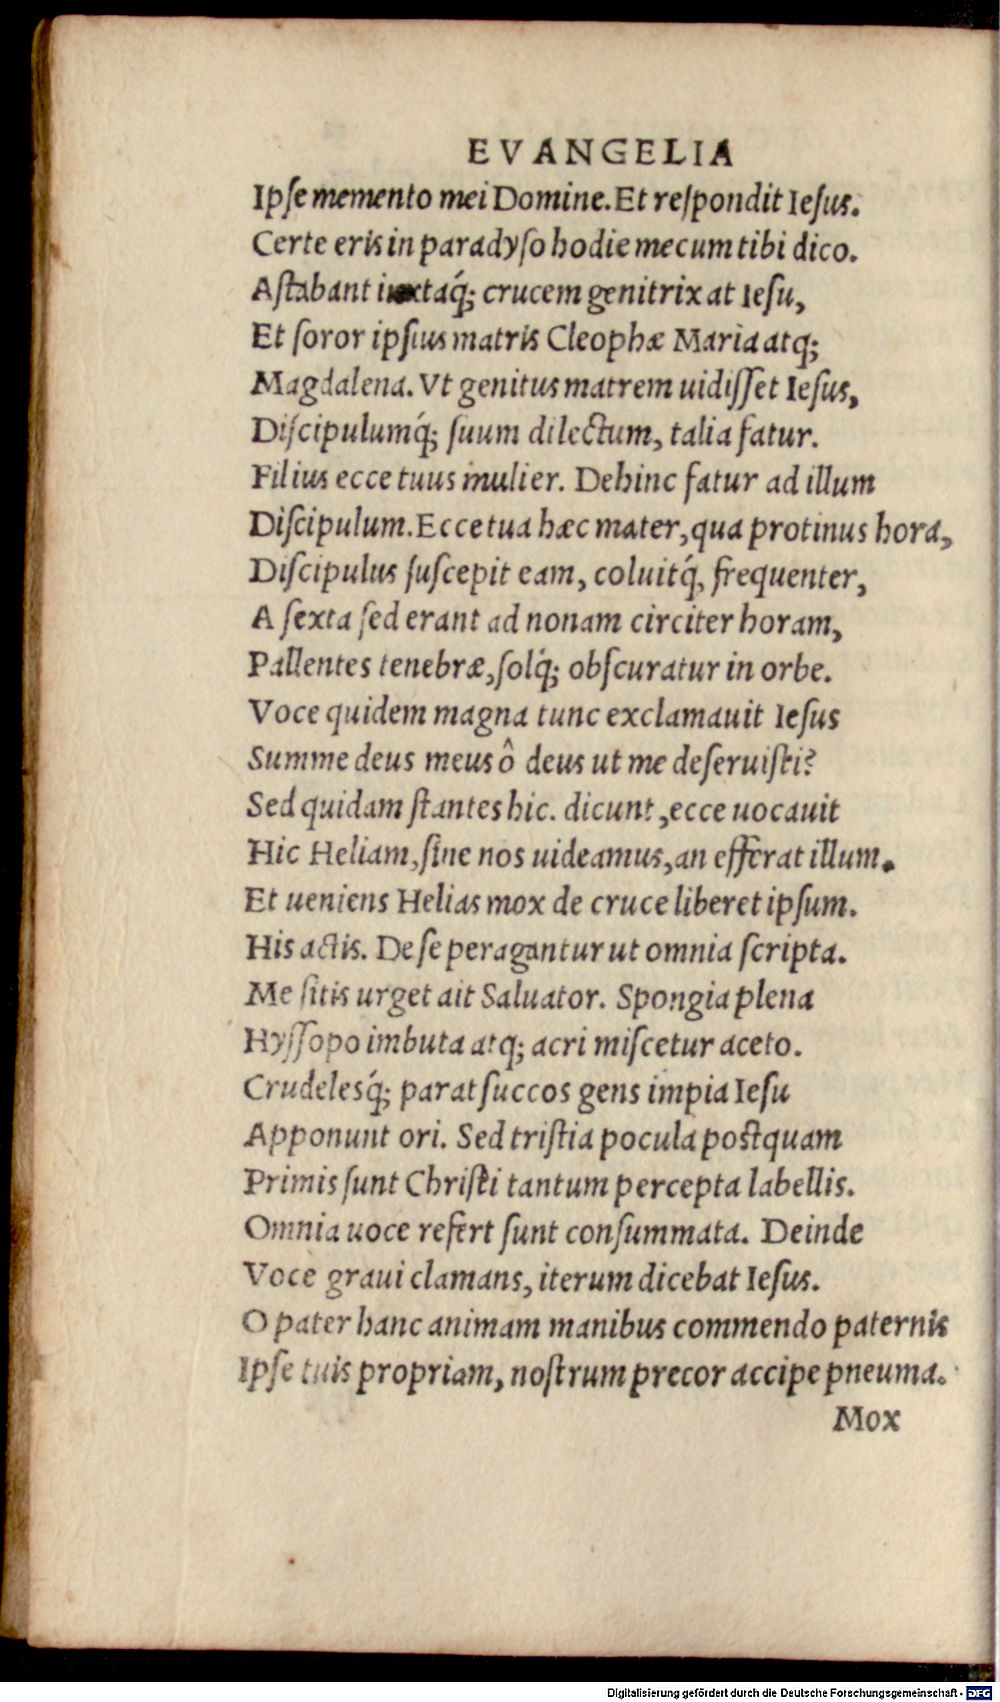 EVANGELIA
Ipſe memento mei Domine. Et reſpondit Ieſus.
Certe eris in paradyſo hodie mecum tibi dico.
Aſtabant iuxtaq́; crucem genitrix at Ieſu,
Et ſoror ipſius matris Cleophæ Maria atq;
Magdalena. Vt genitus matrem uidiſſet Ieſus,
Diſcipulumq́; ſuum dilectum, talia fatur.
Filius ecce tuus mulier. Dehinc fatur ad illum
Diſcipulum. Ecce tua hæc mater, qua protinus hora,
Diſcipulus ſuſcepit eam, coluitq́, frequenter,
A ſexta ſed erant ad nonam circiter horam,
Pallentes tenebræ, ſolq́; obſcuratur in orbe.
Voce quidem magna tunc exclamauit Ieſus
Summe deus meus ô deus ut me deſeruiſti?
Sed quidam ſtantes hic. dicunt, ecce uocauit
Hic Heliam, ſine nos uideamus, an efferat illum.
Et ueniens Helias mox de cruce liberet ipſum.
His actis. De ſe peragantur ut omnia ſcripta.
Me ſitis urget ait Saluator. Spongia plena
Hyſſopo imbuta atq; acri miſcetur aceto.
Crudelesq́; parat ſuccos gens impia Ieſu
Apponunt ori. Sed triſtia pocula poſtquam
Primis ſunt Chriſti tantum percepta labellis.
Omnia uoce refert ſunt conſummata. Deinde
Voce graui clamans, iterum dicebat Ieſus.
O pater hanc animam manibus commendo paternis
Ipſe tuis propriam, noſtrum precor accipe pneuma.
Mox
Digitalisierung gefördert durch die Deutsche Forschungsgemeinschaft - DFG